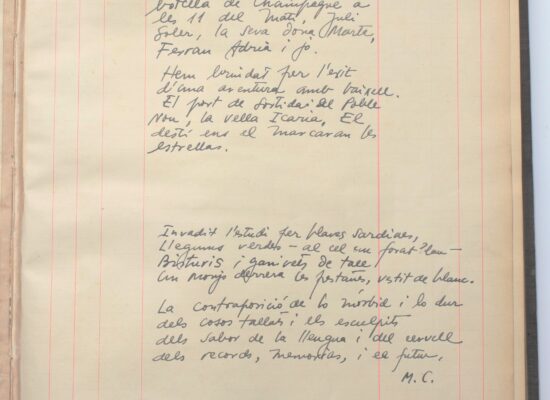 botella de Champagne a
les 11 del matí, Juli
Soler, la seva dona Marta,
Ferran Adrià i jo.
Hem brindat per l'exit
d'una aventura amb vaixell.
El port de sortida és el Poble
Nou, la vella Icaria, El
destí ens el marcaran les
estrellas.
Invadit l'estudi per blaves sardines,
Llegums verdes - al cel un forat
Bisturis i ganivets de tall
Un monjo darrera les pestañes, vestit de blanc.
La contraposició de lo mòrbid i lo dur
dels cosos tallats i els esculpits
dels sabor de la llengua i del cervell
dels records, memorias, i el futur.
M.C.